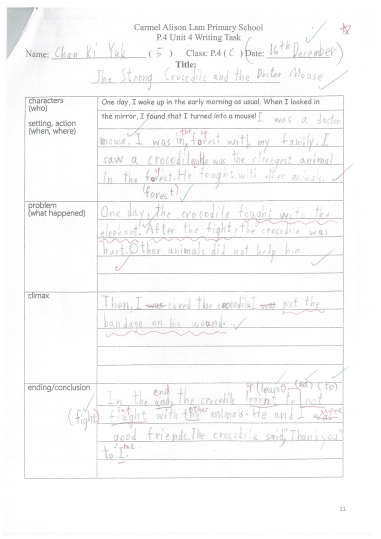 Carmel Alison Lam Primary School
P.4 Unit 4 Writing Task
Name: Chan Ki Yuk ( 5 ) Class: P.4 ( C ) Date: 16th December
Title:
The Strong Crocodile and the Doctor Mouse
characters
(who)
setting, action
(when, where)
One day, I woke up in the early morning as usual. When I looked in
the mirror, I found that I turned into a mouse! I was a doctor
mouse. I was in the forest with my family. I
saw a crocodile. He was the strongest animal
in the forest. He fought with other animals.
(forest)
problem
(what happened)
One day, the crocodile fought with the
elephant. After the fight, the crocodile was
hurt. Other animals did not help him.
climax
Then, I was cured the crocodile. I was put the
bandage on his wound.
ending/conclusion
end (learnt) (not) (to)
In the and, the crocodile learnt to not
(fight) fought with the other animals. He and I were
good friends. The crocodile said, "Thank you"
to I. me
11